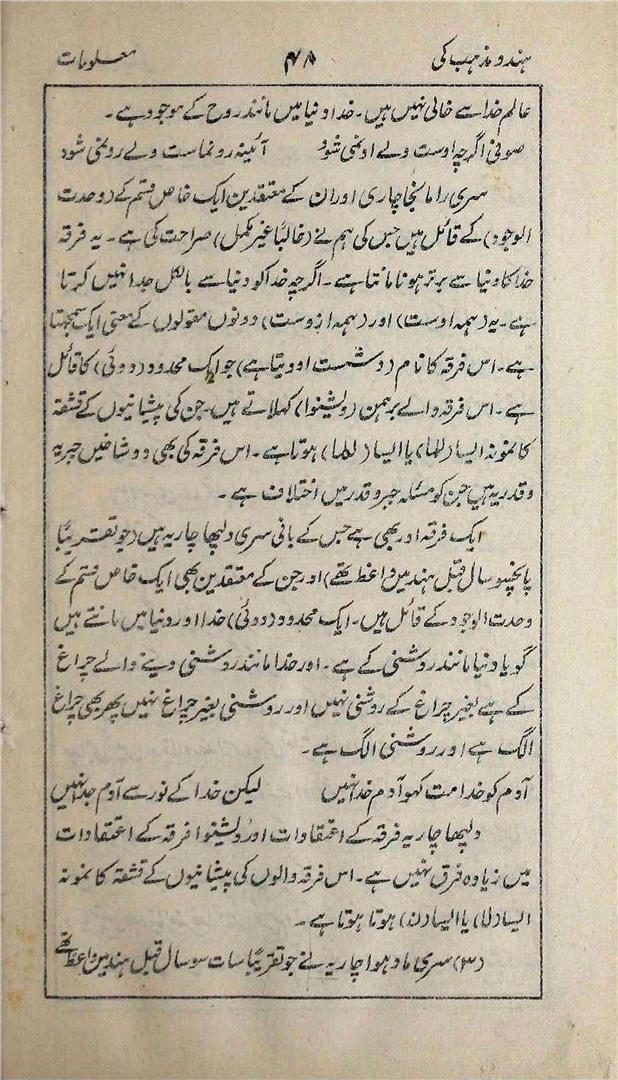 ہندو مذہب کی ۴۸ معلومات
عالم خدا سے خالی نہیں ہیں۔ خدا دنیا میں مانند روح کے موجود ہے۔
صوفی اگرچہ اوست ولے او نمی شود آئینہ رونماست ولے رو نمی شود
سری رامانجاچاری اور ان کے معتقدین ایک خاص قسم کے (وحدت
الوجود) کے قائل ہیں جس کی ہم نے (غالباً غیر مکمل) صراحت کی ہے۔ یہ فرقہ
خدا کا دنیا سے برتر ہونا مانتا ہے۔ اگرچہ خدا کو دنیا سے بالکل جدا نہیں کرتا
ہے۔ یہ (ہمہ اوست) اور (ہمہ ازوست) دونوں مقولوں کے معنی ایک سمجھتا
ہے۔ اس فرقہ کا نام (وشست اوویتا ہے) جو ایک محدود (دوئی) کا قائل
ہے۔ اس فرقہ والے برہمن (ویشنوا) کہلاتے ہیں۔ جن کی پیشانیوں کے قشقہ
کا نمونہ ایسا یا ایسا ہوتا ہے۔ اس فرقہ کی بھی دو شاخیں جبریہ
و قدریہ ہیں جن کو مسئلہ جبر و قدر میں اختلاف ہے۔
ایک فرقہ اور بھی ہے جس کے بانی سری ولبھاچاریہ ہیں (جو تقریباً
پانچسو سال قبل ہند میں واعظ تھے) اور جن کے معتقدین بھی ایک خاص قسم کے
وحدت الوجود کے قائل ہیں۔ ایک محدود (دوئی) خدا اور دنیا میں مانتے ہیں
گویا دنیا مانند روشنی کے ہے۔ اور خدا مانند روشنی دینے والے چراغ
کے ہے بغیر چراغ کے روشنی نہیں اور روشنی بغیر چراغ نہیں پھر بھی چراغ
الگ ہے اور روشنی الگ ہے۔
آدم کو خدا مت کہو آدم خدا نہیں لیکن خدا کے نور سے آدم جدا نہیں
ولبھاچاریہ فرقہ کے اعتقادات اور ویشنوا فرقہ کے اعتقادات
میں زیادہ فرق نہیں ہے۔ اس فرقہ والوں کی پیشانیوں کے قشقہ کا نمونہ
ایسا یا ایسا ہوتا ہوتا ہے۔
(۳) سری مادھوا چاریہ نے جو تقریباً سات سو سال قبل ہند میں واعظ تھے